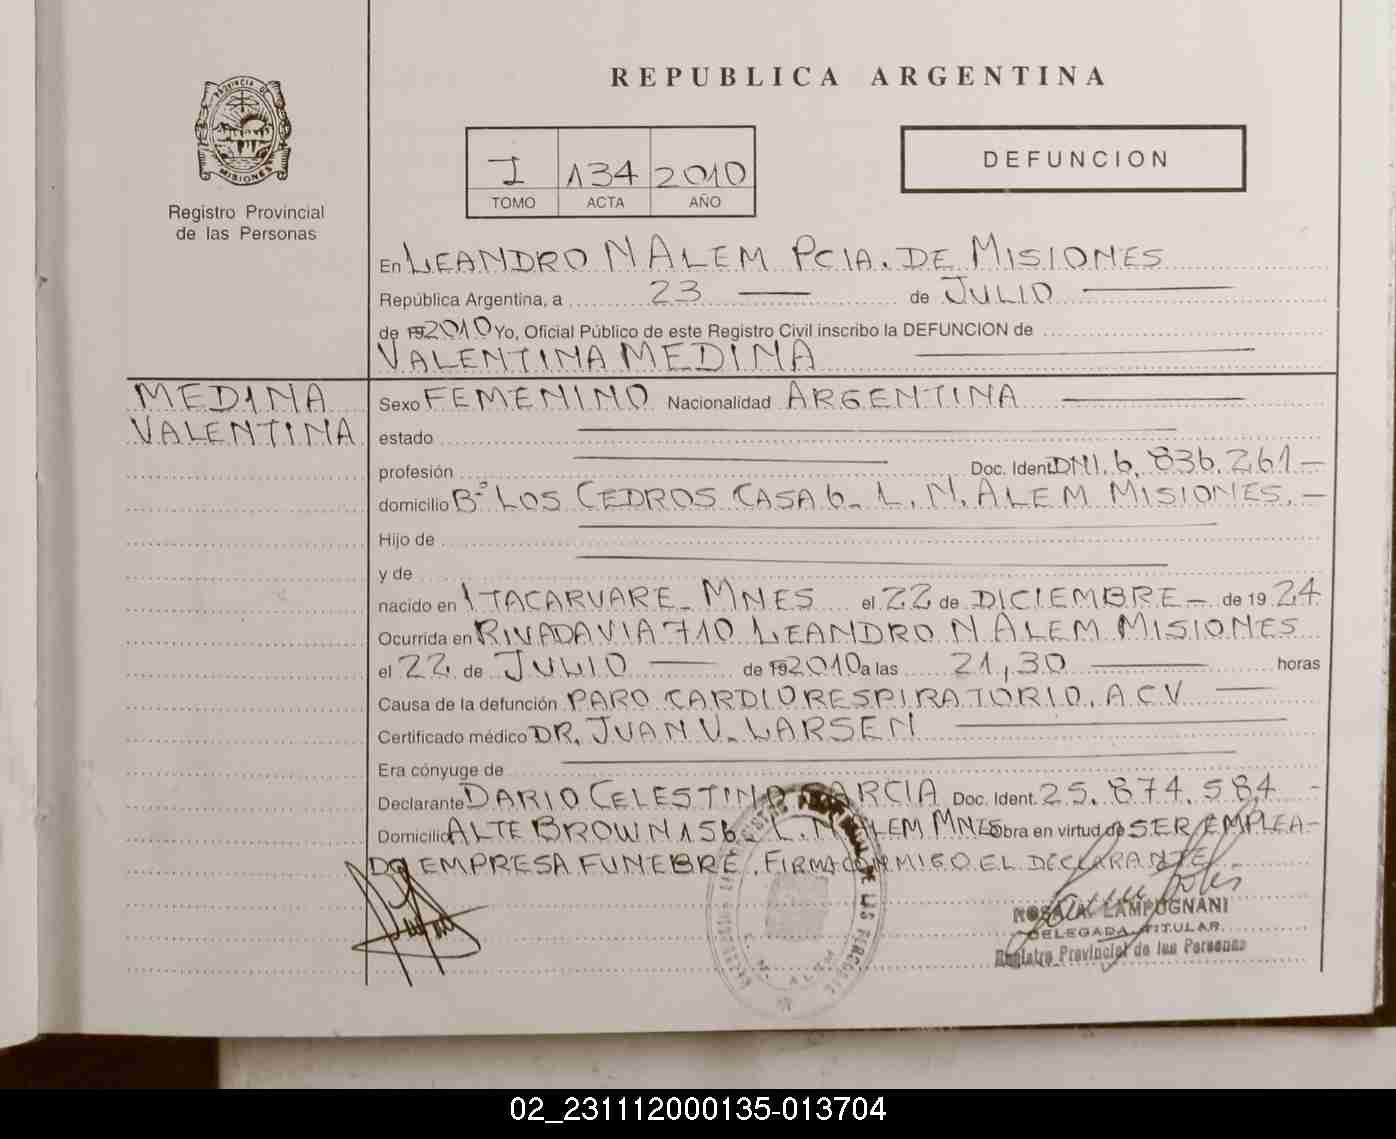 REPUBLICA ARGENTINA
PROVINCIA DE
MISIONES
Registro Provincial
de las Personas
I 134 2010
TOMO ACTA AÑO
DEFUNCION
En LEANDRO N ALEM PCIA. DE MISIONES
República Argentina, a 23 de JULIO
de 192010 Yo, Oficial Público de este Registro Civil inscribo la DEFUNCION de
VALENTINA MEDINA
MEDINA
VALENTINA
Sexo FEMENINO Nacionalidad ARGENTINA
estado
profesión Doc. Ident. DNI. 6.836.261-
domicilio Bº LOS CEDROS CASA 6- L. N. ALEM MISIONES.-
Hijo de
y de
nacido en ITACARUARE- MNES el 22 de DICIEMBRE- de 19 24
Ocurrida en RIVADAVIA 710 LEANDRO N ALEM MISIONES
el 22 de JULIO de 192010 a las 21,30 horas
Causa de la defunción PARO CARDIORESPIRATORIO. A.C.V
Certificado médico DR. JUAN V. LARSEN
Era cónyuge de
Declarante DARIO CELESTINO GARCIA Doc. Ident. 25.874.584 -
Domicilio ALTE BROWN 156 L. N ALEM MNES obra en virtud de SER EMPLEA-
DO EMPRESA FUNEBRE. FIRMA CONMIGO EL DECLARANTE-
ROSA A. LAMPUGNANI
DELEGADA TITULAR
Registro Provincial de las Personas
02_231112000135-013704